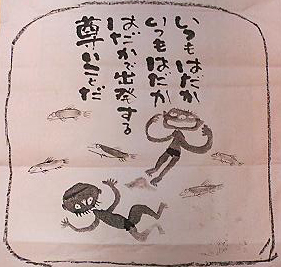 いつもはだか
いつもはだか
はだかで出発する
尊いことだ